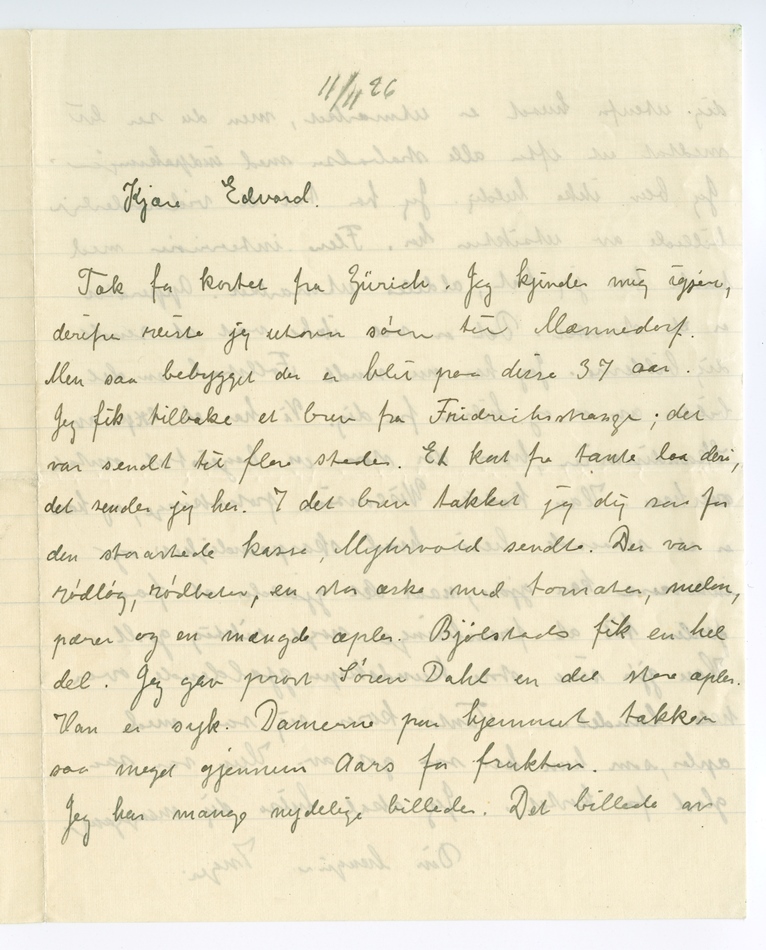 11/11 26
Kjære Edvard.
Tak for kortet fra Zürich. Jeg kjender mig igjen,
derifra reiste jeg utover søen til Mænnedorf.
Men saa bebygget der er blit paa disse 37 aar.
Jeg fik tilbake et brev fra Friedrichsstrasse; det
var sendt til flere steder. Et kort fra tante laa deri,
det sender jeg her. I det brev takket jeg dig saa for
den storartede kasse, Myhrvold sendte. Der var
rødløg, rødbeter, en stor æske med tomater, melon,
pærer og en mængde æpler. Bjølstads fik en hel
del. Jeg gav prost Søren Dahl en del store æpler.
Han er syk. Damerne paa hjemmet takker
saa meget gjennem Aars for frukten.
Jeg har mange nydelige billeder. Det billede av